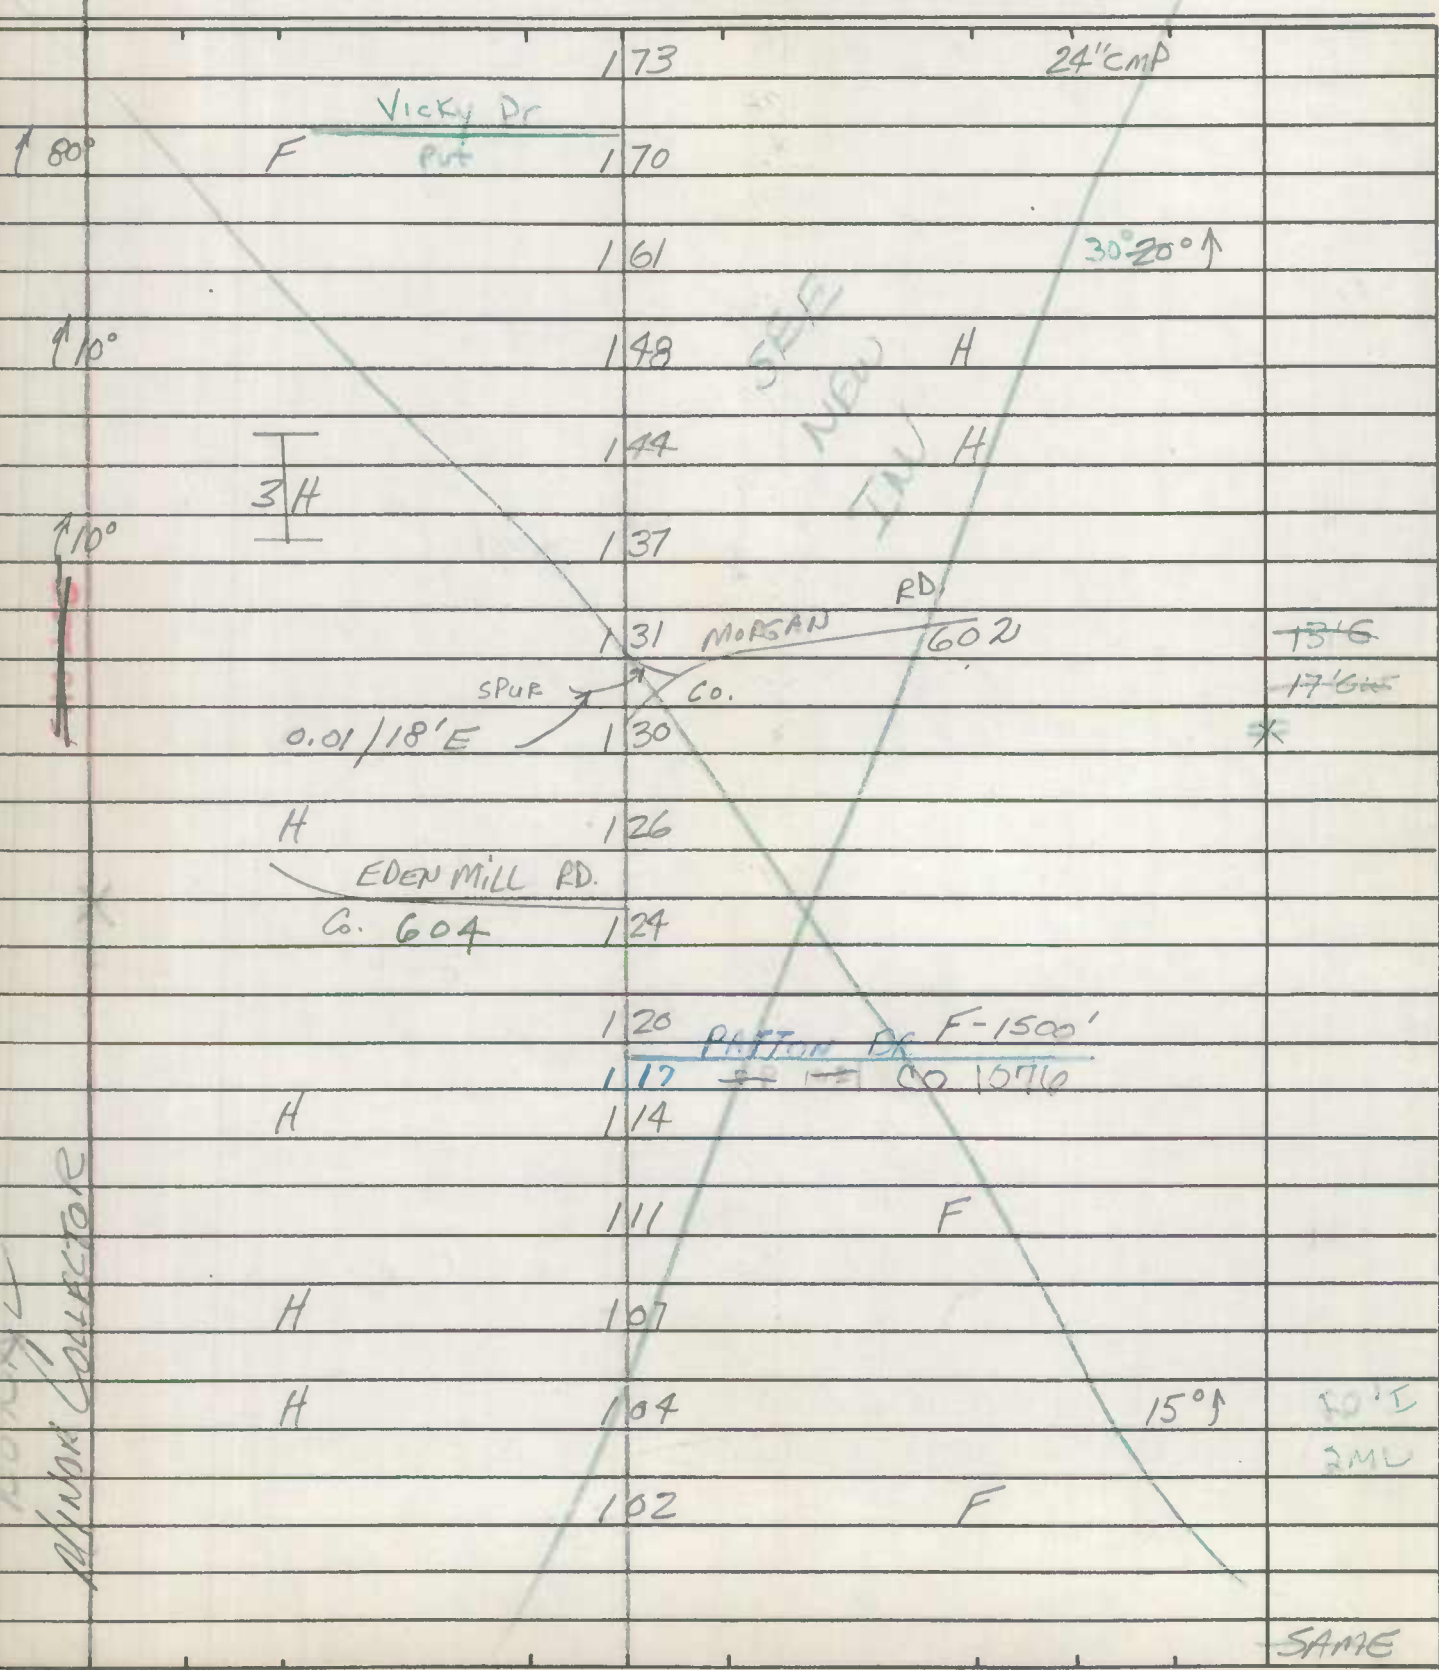 1 73 24"CMP
Vicky Dr
80° F Pvt 1 70
1 61 30° 20°
SEE
10° 1 48 H
NEW
1 44 H
INV
3 H
10° 1 37
RD.
1 31 MORGAN 602 13'G
SPUR CO. 17'G
0.01/18'E 1 30 *
H 1 26
EDEN MILL RD.
Co. 604 1 24
1 20 PATTON DR F-1500'
1 17 CO 1076
H 1 14
1 11 F
H 1 07
H 1 04 15°
2ML
1 02 F
MINOR COLLECTOR
SAME